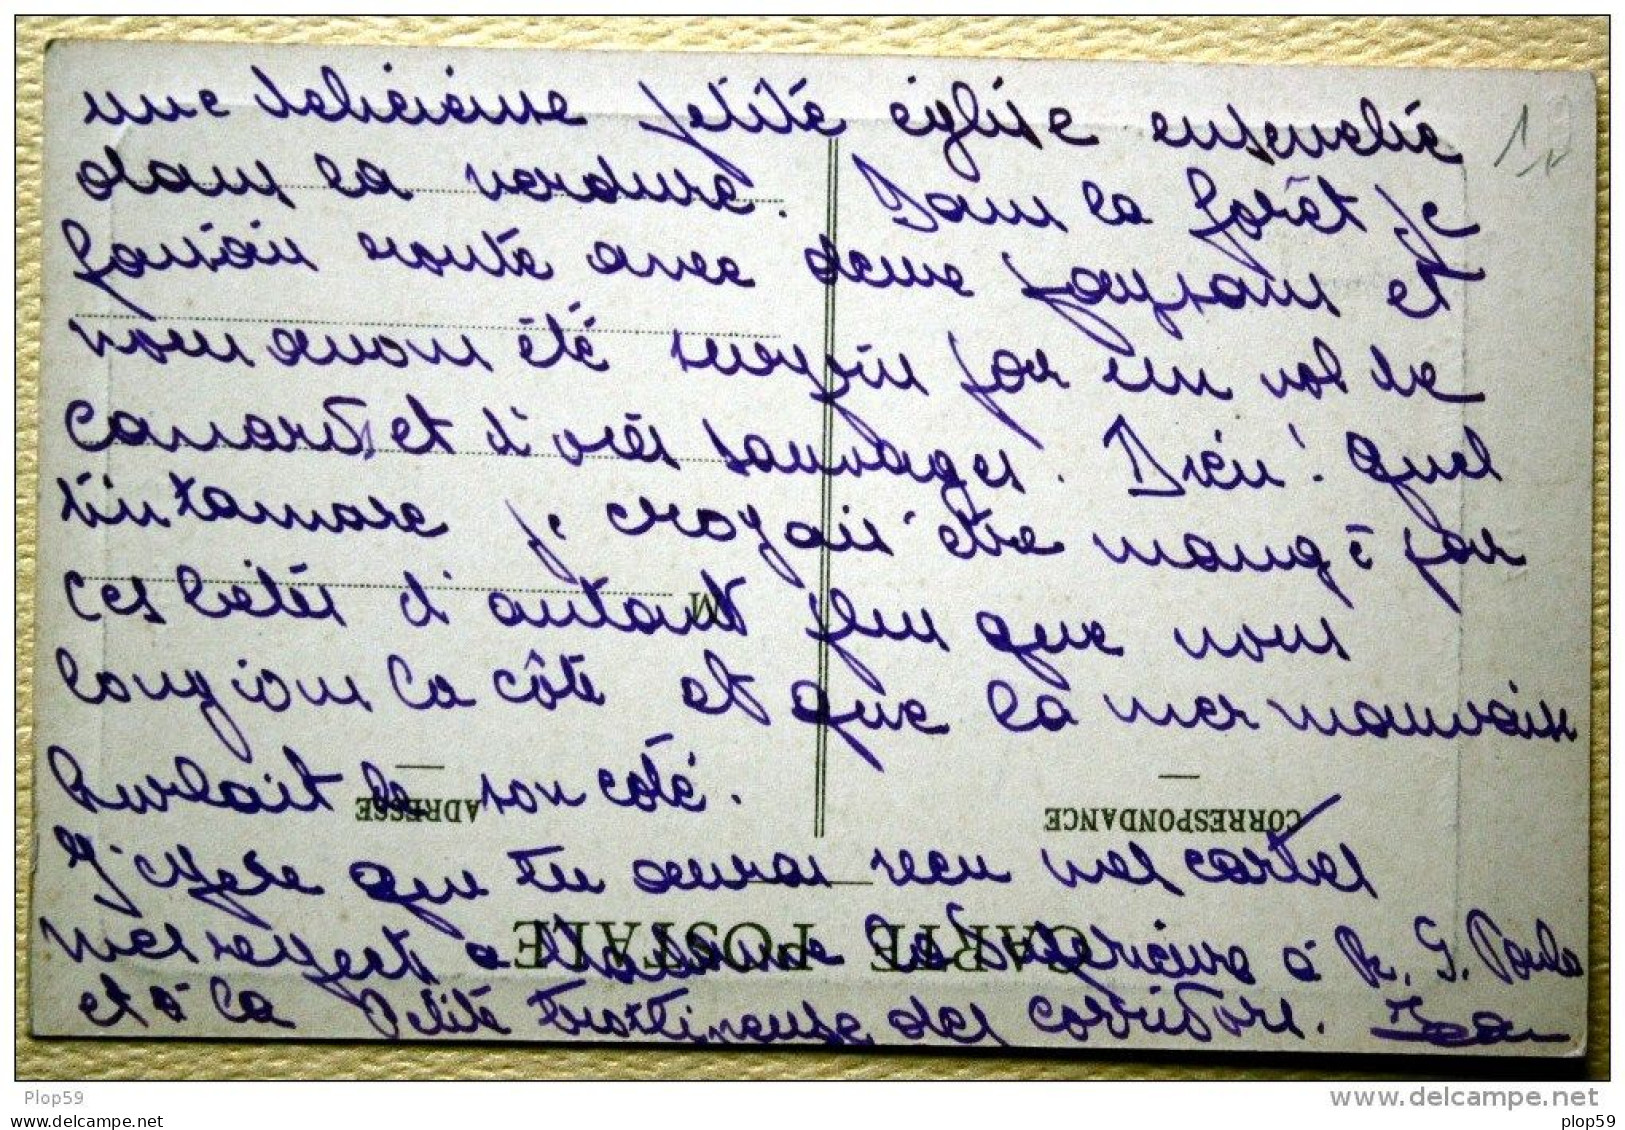 une délicieuse petite église ensevelie
dans la verdure. Dans la forêt je
faisais route avec deux paysans et
nous avons été surpris par un vol de
canards et d'oies sauvages. Dieu! quel
tintamare je croyais être mangé par
ces bêtes d'autant plus que nous
longions la côte et que la mer mauvaise
hurlait de son côté.
J'espère que tu auras reçu mes cartes
mes respects à Madame la Supérieure à R. G. Paula
et à la petite trottineuse des corridors. Jean
1,
M
ADRESSE
CORRESPONDANCE
CARTE POSTALE
Plop59
www.delcampe.net
plop59